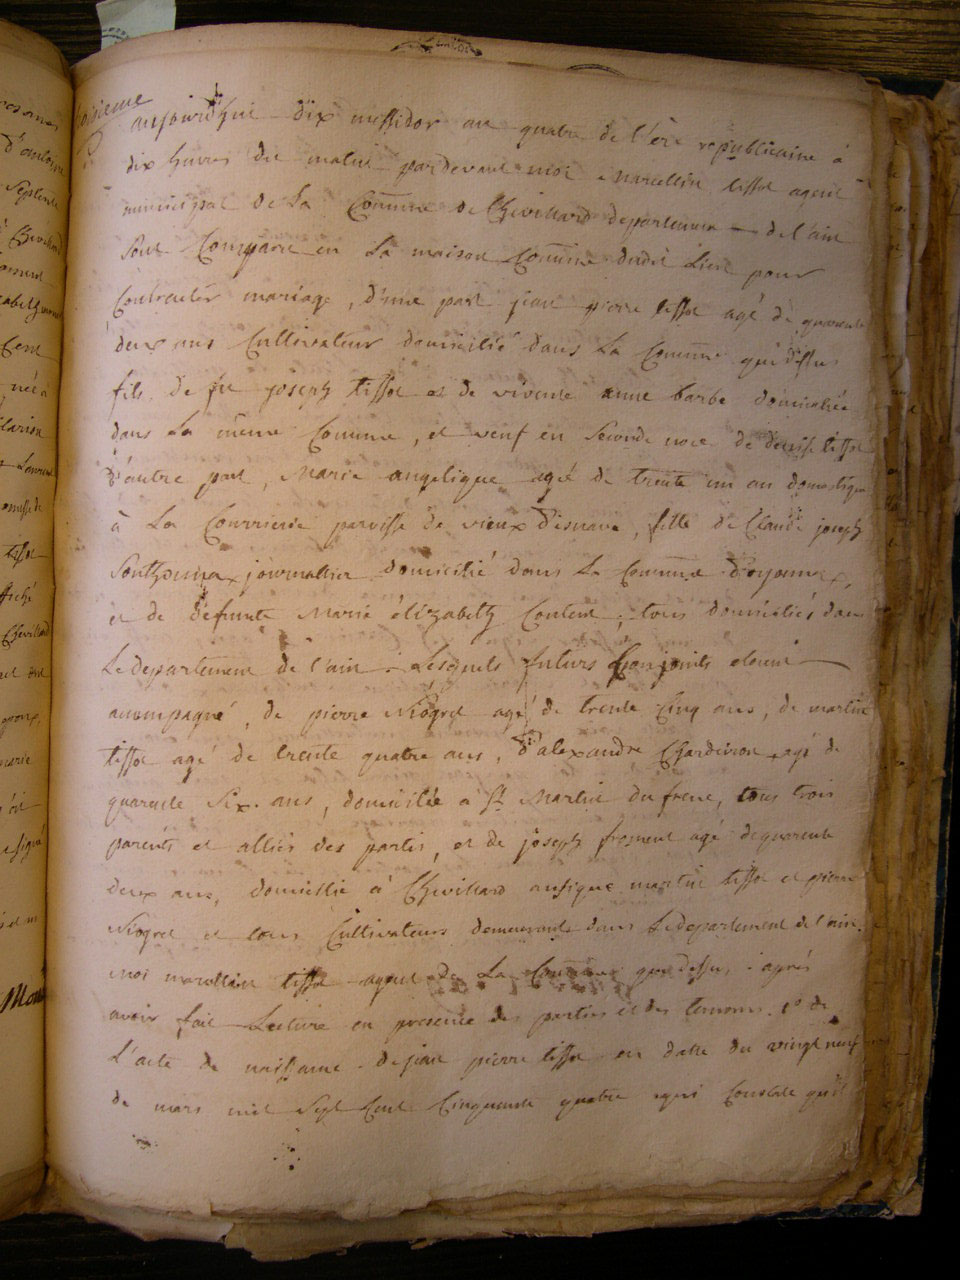 aujourdhui dix messidor an quatre de l'ère republicaine à
dix heures du matin pardevant moi marcellin tissot agent
municipal de la Comune de Chevillard departemen de l'ain
sont Comparu en la maison Comune dudit Lieu pour
Contracter mariage, d'une part jean pierre tissot agé de quarante
deux ans Cultivateur domicilié dans la Comune que dessus
fils de feu joseph tissot et de vivente anne barbe domiciliée
dans la même Comune, et veuf en seconde noce de denise tissot
d'autre part, Marie angelique agé de trente un an domestique
à la Courrierie paroisse de vieux d'isnave, fille de Claude joseph
Sonthonnax journallier domicilié dans la Comune d'oyonnax,
et de défunte Marie élizabeth Contene, tous domiciliés dans
Le departement de l'ain. Lesquels futurs Conjoints etoient
acompagné, de pierre Niogret agé de trente cinq ans, de martin
tissot agé de trente quatre ans, d'alexandre Chardeiron agé de
quarente six ans, domicilié a St Martin du frene, tous trois
parents et alliés des partis, et de joseph froment agé de quarente
deux ans, domicillié à Chevillard ansique martin tissot et pierre
Niogret et tous Cultivateurs demeurants dans Ledepartement de l'ain.
moi marcellin tissot agent de La Comune que dessus, après
avoir fait Lecture en presence des parties et des temoins. 1° de
L'acte de naissance de jean pierre tissot en datte du vingt neuf
de mars mil sept Cent Cinquante quatre qui Constate qu'il